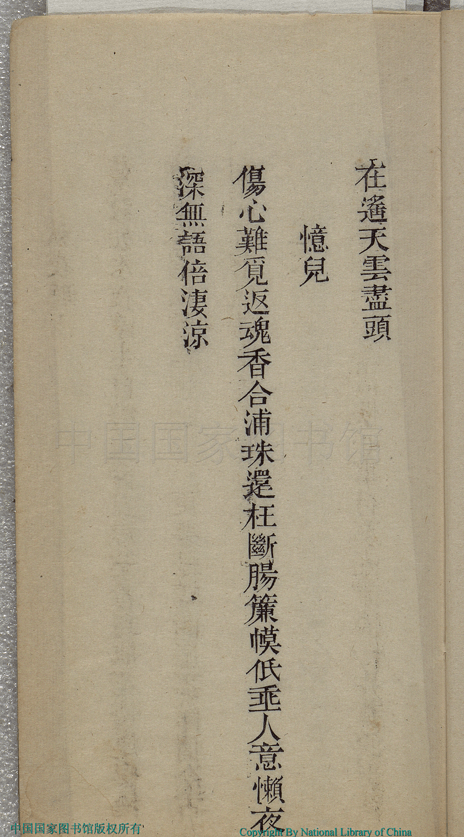 在遙天雲盡頭
憶兒
傷心難覓返魂香合浦珠還枉斷腸簾幙低垂人意懶夜
深無語倍淒涼
中国国家图书馆
中国国家图书馆版权所有
Copyright By National Library of China